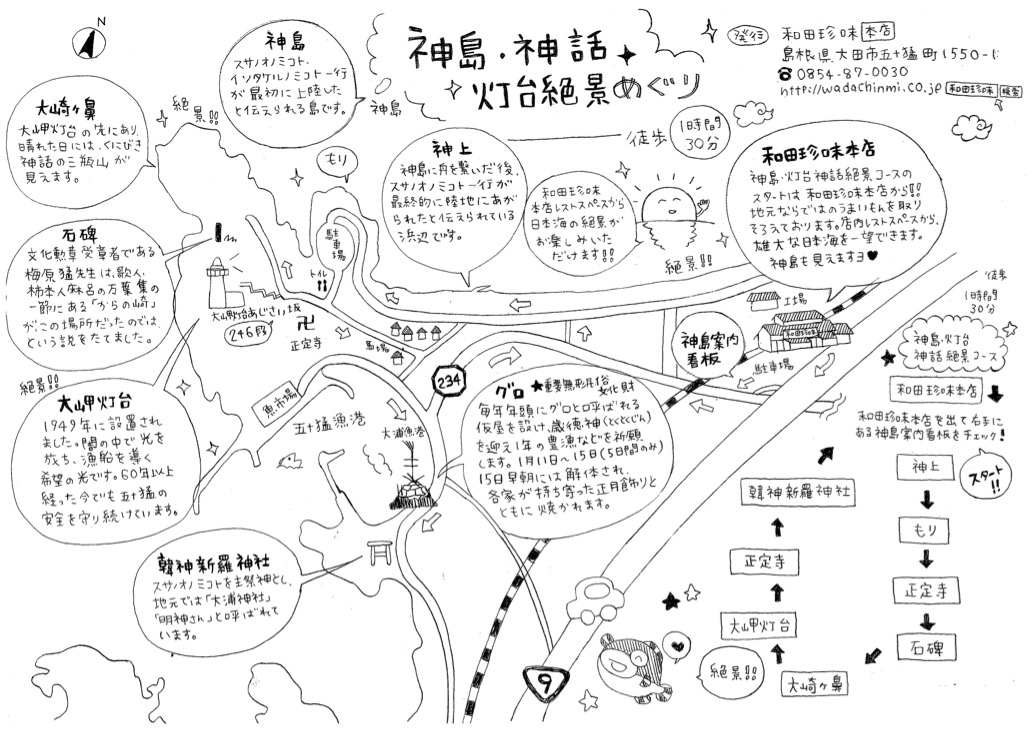 N
神島・神話
灯台絶景めぐり
発行 和田珍味 本店
島根県大田市五十猛町1550-1
☎0854-87-0030
http://wadachinmi.co.jp 和田珍味 検索
徒歩 1時間30分
神島
スサノオノミコト、
イソタケルノミコト一行
が最初に上陸した
と伝えられる島です。
神島
大崎ヶ鼻
大岬灯台の先にあり、
晴れた日には、くにびき
神話の三瓶山が
見えます。
絶景!!
もり
神上
神島に舟を繋いだ後、
スサノオノミコト一行が
最終的に陸地にあが
られたと伝えられている
浜辺です。
和田珍味
本店レストスペースから
日本海の絶景が
お楽しみいた
だけます!!
絶景!!
和田珍味本店
神島・灯台神話絶景コースの
スタートは和田珍味本店から!!
地元ならではのうまいもんを取り
そろえております。店内レストスペースから、
雄大な日本海を一望できます。
神島も見えますヨ♥
石碑
文化勲章受章者である
梅原猛先生は、歌人、
柿本人麻呂の万葉集の
一節にある「からの崎」
がこの場所だったのでは、
という説をたてました。
駐車場
トイレ
大岬灯台あじさい坂
246段
正定寺
馬場
工場
和田珍味本店
駐車場
神島案内
看板
絶景!!
大岬灯台
1949年に設置され
ました。闇の中で光を
放ち、漁船を導く
希望の光です。60年以上
経った今でも五十猛の
安全を守り続けています。
魚市場
五十猛漁港
大浦漁港
234
グロ ★重要無形民俗文化財
毎年年頭にグロと呼ばれる
仮屋を設け、歳徳神(とくとくじん)
を迎え1年の豊漁などを祈願
します。1月11日〜15日(5日間のみ)
15日早朝には解体され、
各家が持ち寄った正月飾りと
ともに焼かれます。
韓神新羅神社
スサノオノミコトを主祭神とし、
地元では「大浦神社」
「明神さん」と呼ばれて
います。
9
徒歩
1時間
30分
神島・灯台
神話絶景コース
和田珍味本店
和田珍味本店を出て右手に
ある神島案内看板をチェック!
スタート!!
神上
もり
正定寺
石碑
大崎ヶ鼻
絶景!!
大岬灯台
正定寺
韓神新羅神社